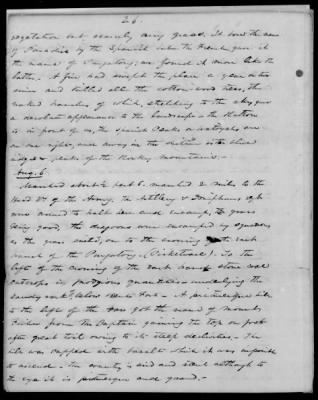 26.
vegetation but scarcely any grass. It bore the name
of Paradise by the Spanish but the French gave it
the name of Purgatory; we found it more like the
latter. A fire had swept the place a year or two
since and killed all the cotton wood trees, the
naked branches of which, stretching to the sky, gave
a desolate appearance to the landscape - the Rattone
is in front of us, the Spanish Peaks or watoyah, are
on our right, and away in the distance is the blue
ridge & peaks of the Rocky Mountains. -
Aug. 6.
Marched about ½ past 6. marched 2 miles to the
Head Qrs of the Army, the Artillery & Doniphans regt
was ordered to halt here and encamp, the grass
being good, the dragoons were encamped by squadrons
as the grass suited, on to the crossing of the
branch of the Purgatory, (Pickettwire). To the
left of the crossing of the stone coal
outcrops in prodigious quantities underlying the
sandy rock below Bents Fort - A picturesque hill
to the left of the got the name of mount
Fisher from the Captain gaining the top on foot
after great toil owing to its steep declivities. The
hill was capped with basalt which it was impossible
to ascend. The country is arid and sterile although to
the eye it is picturesque and grand. -